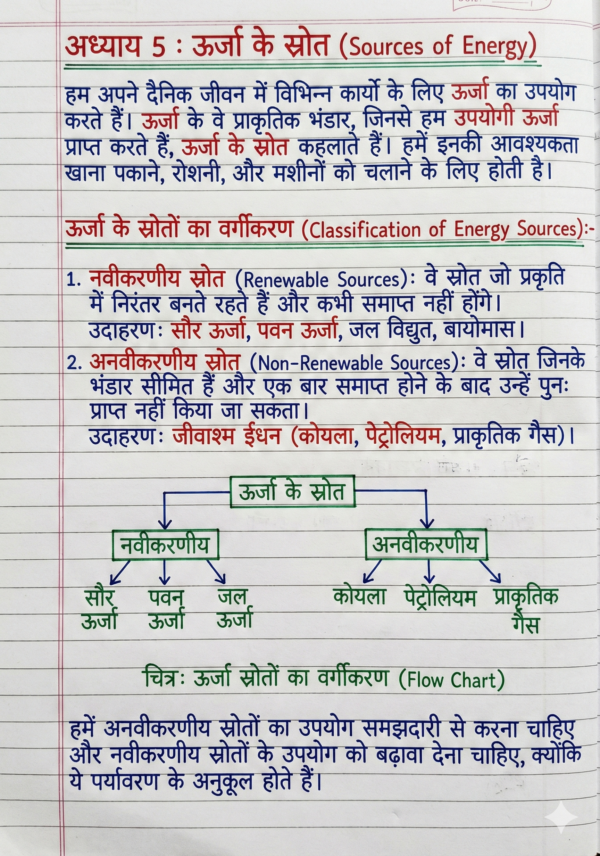 अध्याय 5 : ऊर्जा के स्रोत (Sources of Energy)
हम अपने दैनिक जीवन में विभिन्न कार्यो के लिए ऊर्जा का उपयोग
करते हैं। ऊर्जा के वे प्राकृतिक भंडार, जिनसे हम उपयोगी ऊर्जा
प्राप्त करते हैं, ऊर्जा के स्रोत कहलाते हैं। हमें इनकी आवश्यकता
खाना पकाने, रोशनी, और मशीनों को चलाने के लिए होती है।
ऊर्जा के स्रोतों का वर्गीकरण (Classification of Energy Sources):-
1. नवीकरणीय स्रोत (Renewable Sources): वे स्रोत जो प्रकृति
में निरंतर बनते रहते हैं और कभी समाप्त नहीं होंगे।
उदाहरण: सौर ऊर्जा, पवन ऊर्जा, जल विद्युत, बायोमास।
2. अनवीकरणीय स्रोत (Non-Renewable Sources): वे स्रोत जिनके
भंडार सीमित हैं और एक बार समाप्त होने के बाद उन्हें पुनः
प्राप्त नहीं किया जा सकता।
उदाहरण: जीवाश्म ईंधन (कोयला, पेट्रोलियम, प्राकृतिक गैस)।
ऊर्जा के स्रोत
नवीकरणीय अनवीकरणीय
सौर पवन जल कोयला पेट्रोलियम प्राकृतिक
ऊर्जा ऊर्जा ऊर्जा गैस
चित्र: ऊर्जा स्रोतों का वर्गीकरण (Flow Chart)
हमें अनवीकरणीय स्रोतों का उपयोग समझदारी से करना चाहिए
और नवीकरणीय स्रोतों के उपयोग को बढ़ावा देना चाहिए, क्योंकि
ये पर्यावरण के अनुकूल होते हैं।